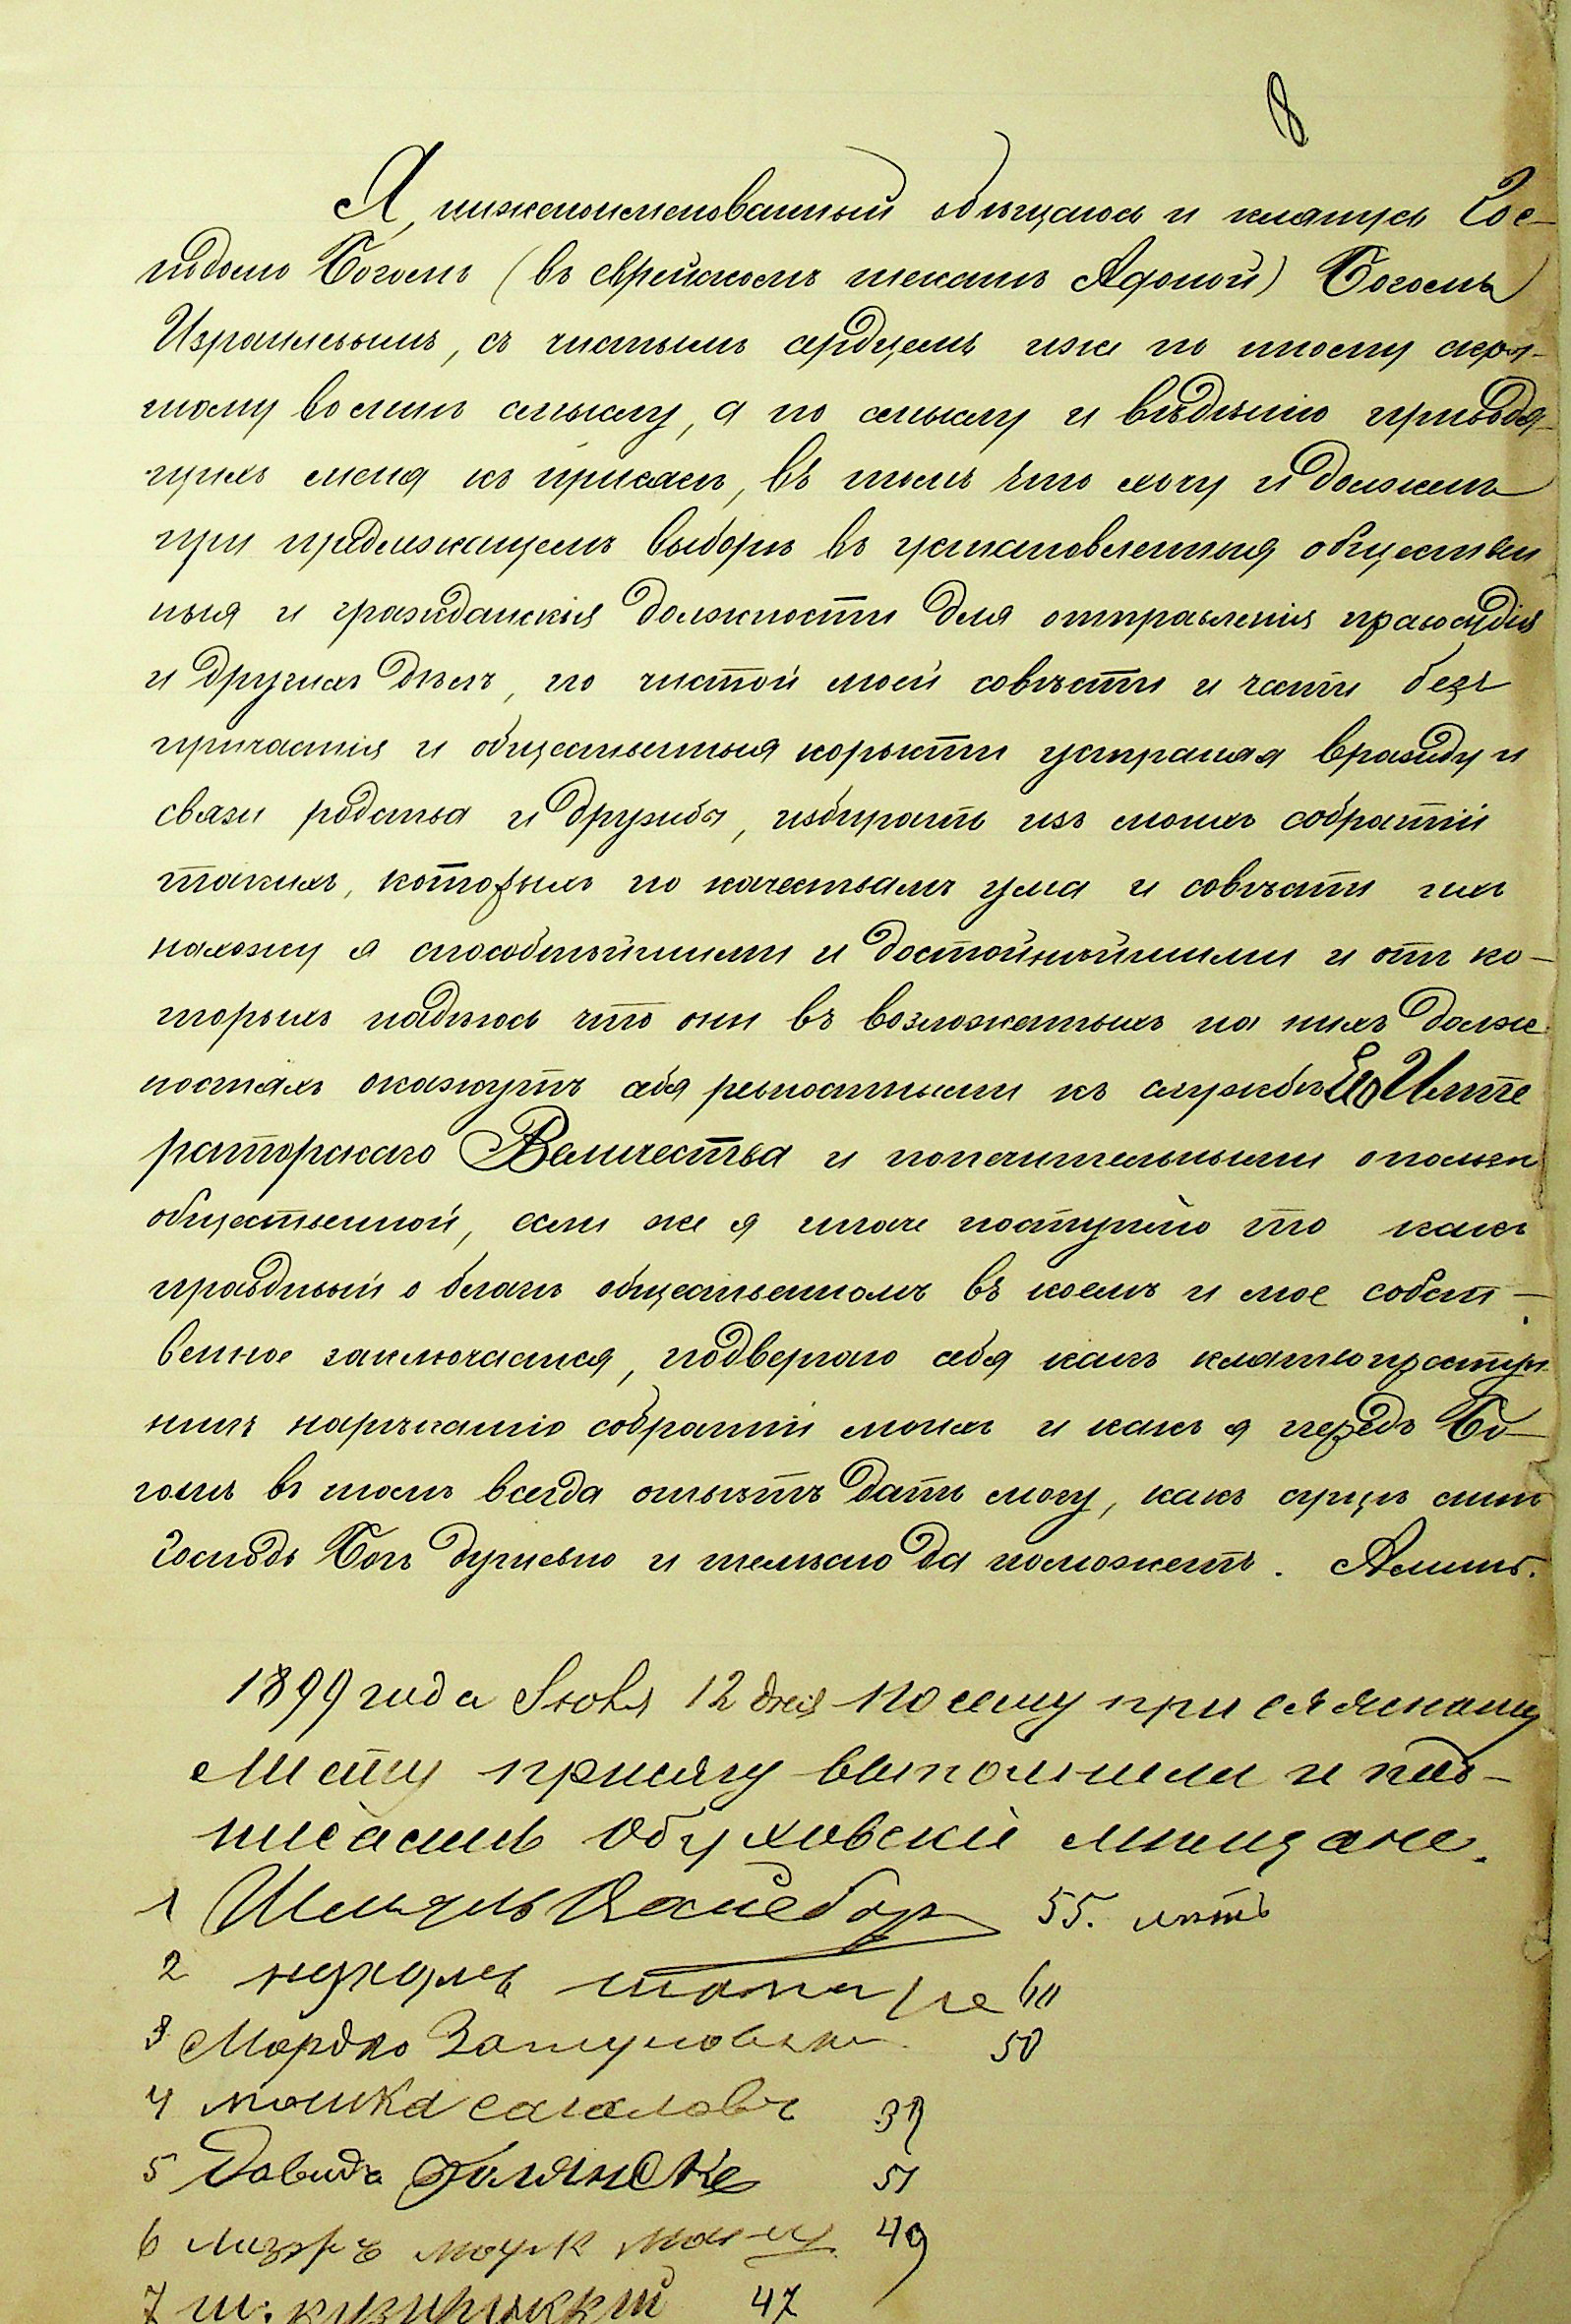 8
Я, нижепоименованный обѣщаюсь и клянусь Гос-
подомъ Богомъ (въ еврейскомъ текстѣ Адоной) Богомъ
Израилевымъ, съ чистымъ сердцемъ не по иному скры-
тному во мнѣ смыслу, а по смыслу и вѣдѣнію приводя-
щихъ меня къ присягѣ, въ томъ что хочу и долженъ
при предлежащемъ выборѣ въ установленныя обществен
ныя и гражданскія должности для отправленія правосудія
и другихъ дѣлъ, по чистой моей совѣсти и чести безъ
пристрастія и собственныя корысти устраняя вражду и
связи родства и дружбы, избирать изъ моихъ собратій
такихъ, которыхъ по качествамъ ума и совѣсти ихъ
нахожу я способнѣйшими и достойнѣйшими и отъ ко-
торыхъ надѣюсь что они въ возложенныхъ на нихъ долж
ностяхъ окажутъ себя ревностными къ службѣ Его Импе
раторскаго Величества и попечительными о пользѣ
общественной, если же я иначе поступлю то какъ
нерадивый о благѣ общественномъ въ коемъ и мое собст-
венное заключается, подвергаю себя какъ клятвопреступ
никъ нареканію собратій моихъ и какъ я передъ Бо-
гомъ въ томъ всегда отвѣтъ дать могу, какъ сущъ мнѣ
Господь Богъ душевно и тѣлесно да поможетъ. Аминь.
1899 года Іюня 12 дня По сему присяжному
листу присягу выполнили и под-
писались Обуховскіе мѣщане.
1 55. лѣтъ
2 60
3 Мордко 50
4 Мошка Сагаловъ 39
5 Давидъ 51
6 49
7 Ш. 47